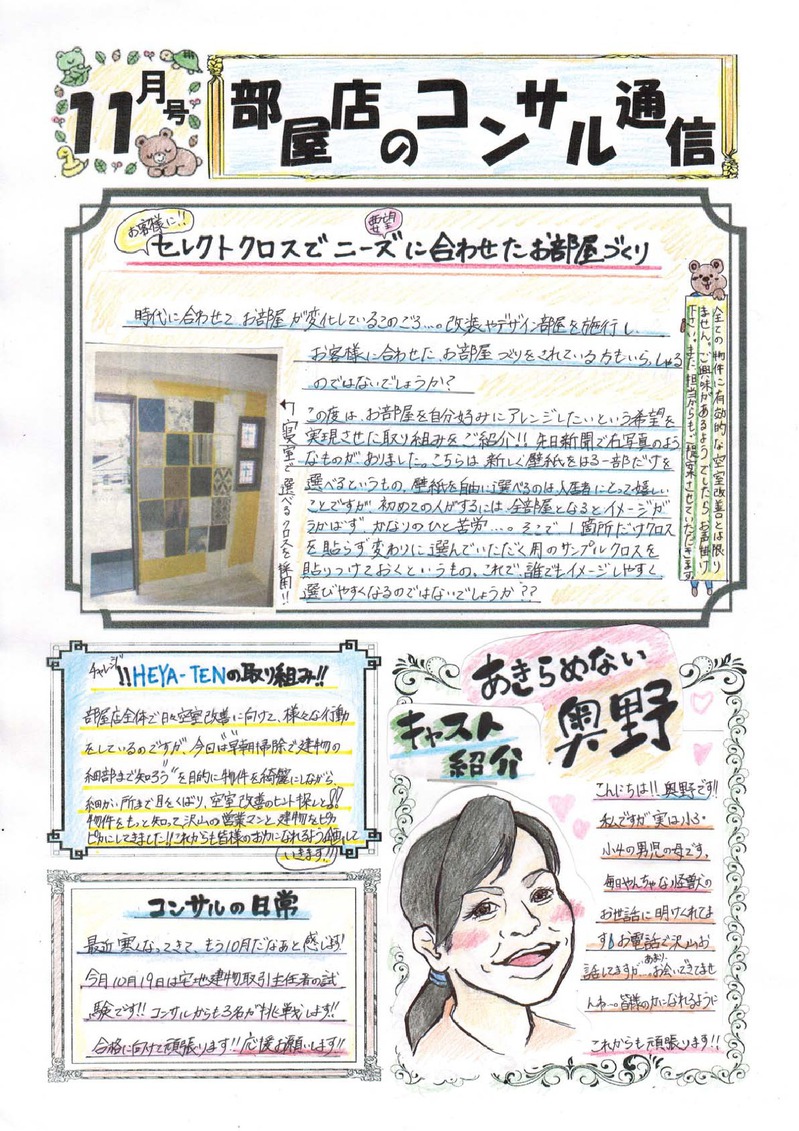 11月号
部屋店のコンサル通信
お客様に!!
要望
セレクトクロスでニーズに合わせたお部屋づくり
時代に合わせてお部屋が変化しているこのごろ…。改装やデザイン部屋を施行し、
お客様に合わせた、お部屋づくりをされている方もいらっしゃる
のではないでしょうか?
この度は、お部屋を自分好みにアレンジしたいという希望を
実現させた取り組みをご紹介!! 先日新聞で右写真のよう
なものがありました。こちらは新しく壁紙をはる一部だけを
選べるというもの。壁紙を自由に選べるのは入居者にとって嬉しい
ことですが初めての人がするには全部屋となるとイメージが
うかばず かなりのひと苦労…。そこで1箇所だけクロス
を貼らず変わりに選んでいただく用のサンプルクロスを
貼りつけておくというもの。これで、誰でもイメージしやすく
選びやすくなるのではないでしょうか??
実室で選べるクロスを採用!!
全ての物件に有効的な空室改善とは限り
ません。ご興味があるようでしたらお声掛け
下さい。また、担当からもご提案させていただきます
チャレンジ!! HEYA-TENの取り組み!!
部屋店全体で日々空室改善に向けて、様々な行動
をしているのですが、今回は早朝掃除で建物の
細部まで知ろう"を目的に物件を綺麗にしながら、
細かい所まで目をくばり、空室改善のヒント探しと!!
物件をもっと知って沢山の営業マンと建物をピカ
ピカにしてきました!!これからも皆様のお力になれるよう企画して
いきます!!
コンサルの日常
最近寒くなってきて、もう10月だなぁと感じます!
今月10月19日は宅地建物取引主任者の試
験です!! コンサルからも3名が挑戦します!!
合格に向けて頑張ります!!応援お願いします!!
あきらめない
奥野
キャスト
紹介
こんにちは!! 奥野です!!
私ですが実は小3・
小4の男児の母です。
毎日やんちゃな怪獣の
お世話に明けくれてま
す!お電話で沢山お
話してますが…あまりお会いできてませ
んね…。皆様の力になれるように
これからも頑張ります!!